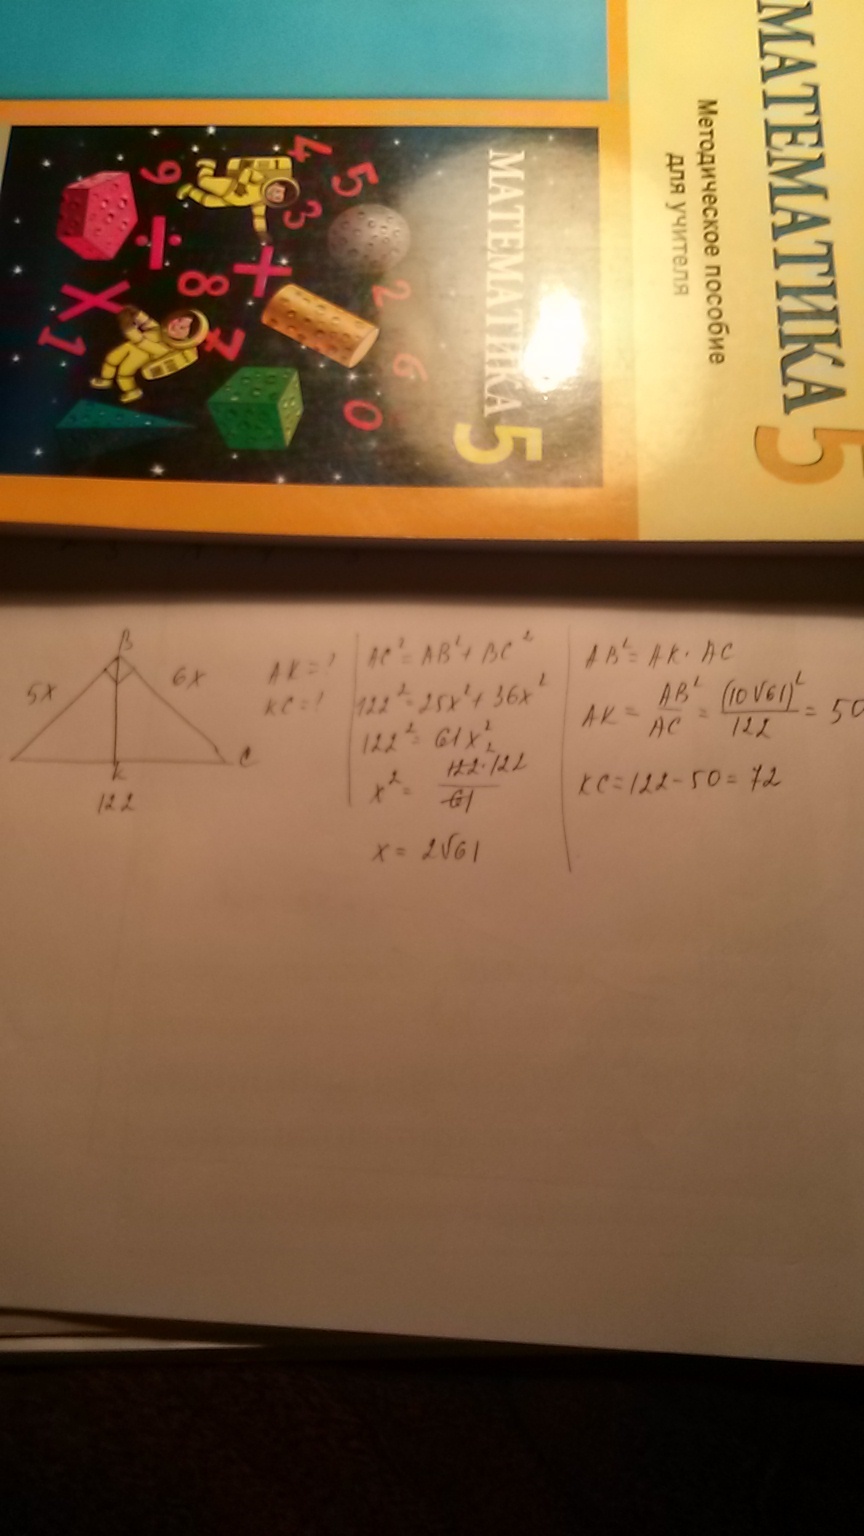 МАТЕМАТИКА 5
Методическое пособие
для учителя
МАТЕМАТИКА 5
4 5 9 3 ÷ 8 + 2 X 7 6 1 0
B
5x
6x
C
K
122
AK = ?
KC = ?
AC² = AB² + BC²
122² = 25x² + 36x²
122² = 61x²
x² = 122·122
61
x = 2√61
AB² = AK · AC
AK = AB²/AC = (10√61)²/122 = 50
KC = 122 - 50 = 72